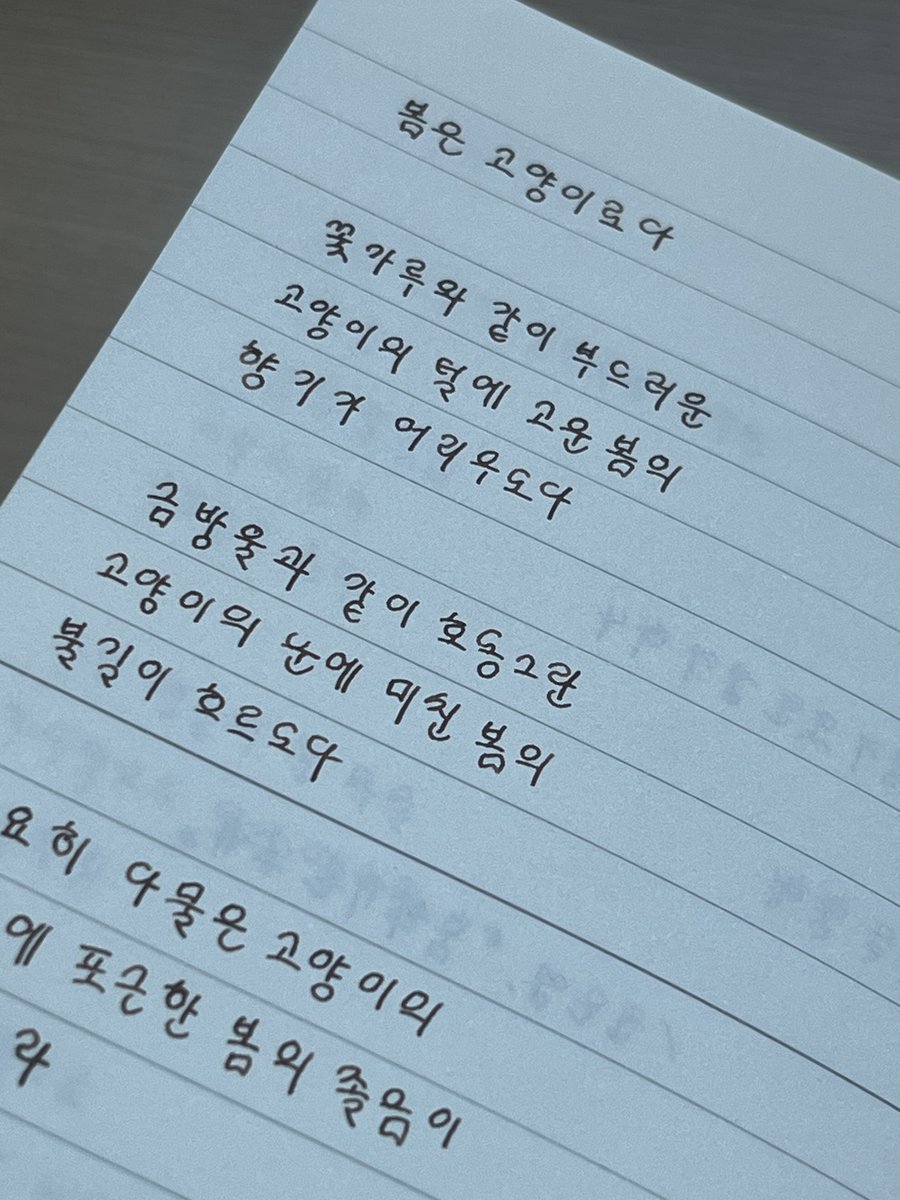 봄은 고양이로다
꽃가루와 같이 부드러운
고양이의 털에 고운 봄의
향기가 어리우도다
금방울과 같이 호동그란
고양이의 눈에 미친 봄의
불길이 흐르도다
요히 다물은 고양이의
에 포근한 봄의 졸음이
라